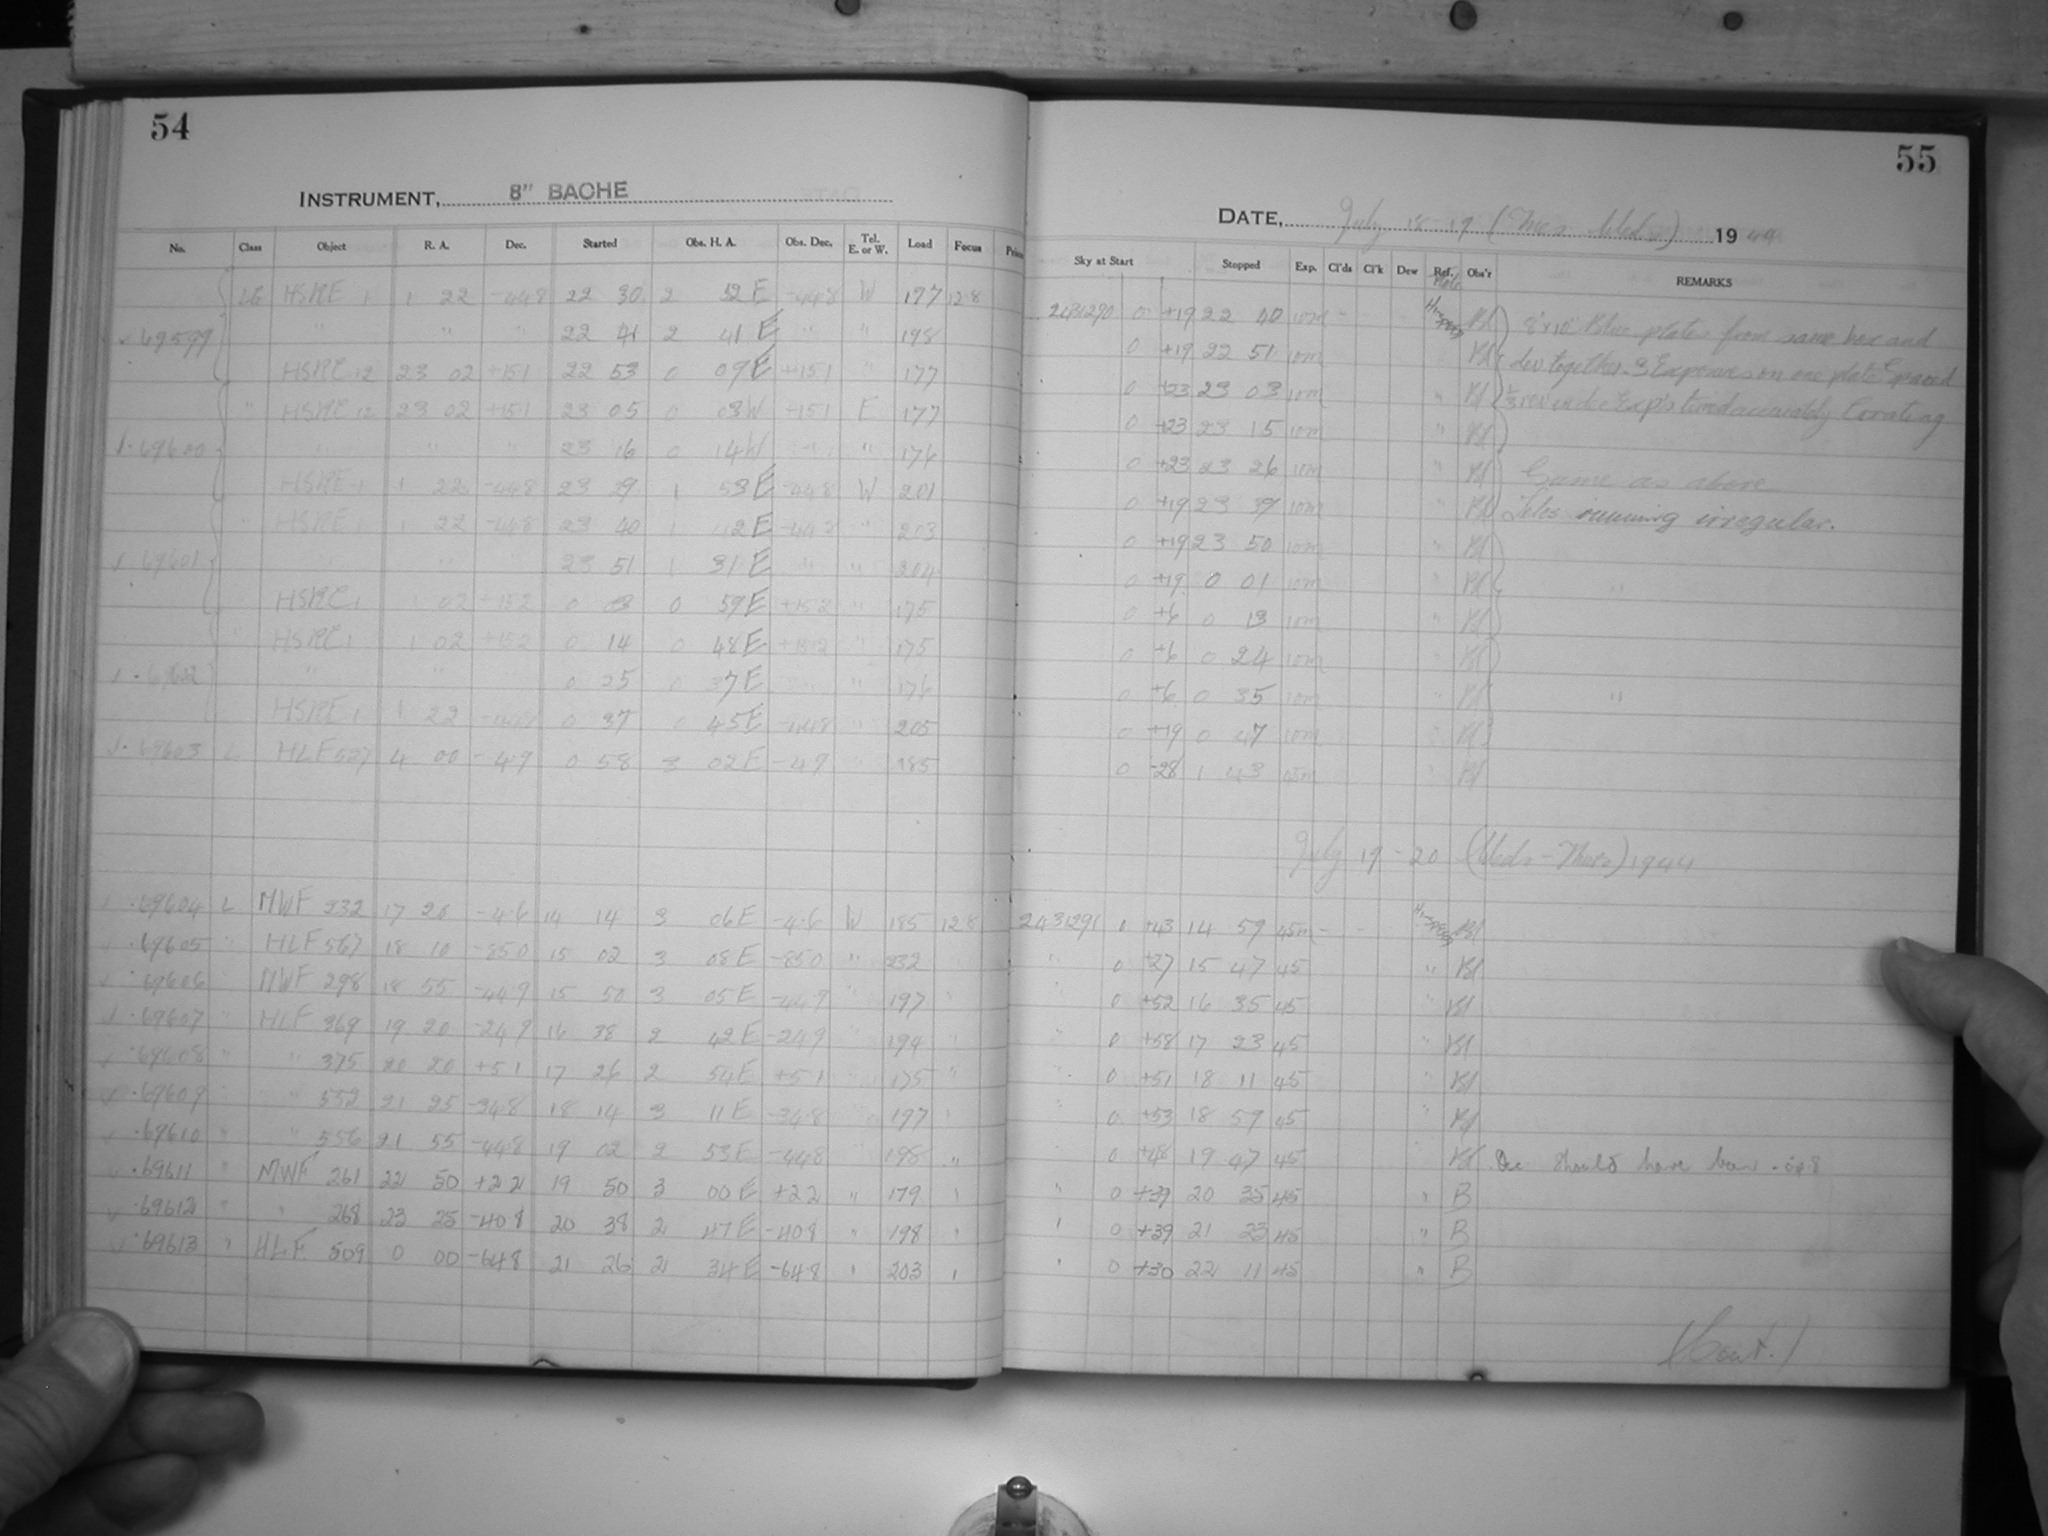 54
INSTRUMENT, 8" BACHE
No. Class Object R. A. Dec. Started Obs. H. A. Obs. Dec. Tel. E. or W. Load Focus
1 22 -448 22 30 2 52 E -448 W 197 128
69599 " " " 22 41 2 41 E " " 198
12 23 02 +151 22 53 0 09 E +151 " 177
" 12 23 02 +151 23 05 0 03 W +151 E 177
69600 " " " 23 16 0 14 W " " 176
1 22 -448 23 29 1 53 E -448 W 201
" 1 22 -448 23 40 1 42 E -448 " 203
69601 " " 23 51 1 31 E " " 204
1 02 +152 0 03 0 59 E +152 " 175
" 1 02 +152 0 14 0 48 E +152 " 175
69602 " " 0 25 0 37 E " 176
1 22 -448 0 37 0 45 E -448 " 205
69603 L HLF 527 4 00 -49 0 58 3 02 E -49 " 185
69604 L MWF 232 17 20 -46 14 14 3 06 E -46 W 185 128
69605 " HLF 567 18 10 -850 15 02 3 08 E -850 " 232
69606 " MWF 298 18 55 -449 15 50 3 05 E -449 " 197 "
69607 " HLF 369 19 20 -249 16 38 2 42 E -249 " 194 "
69608 " " 375 20 20 +51 17 26 2 54 E +51 " 175 "
69609 " " 532 21 25 -348 18 14 3 11 E -348 " 197 "
69610 " " 556 21 55 -448 19 02 2 53 E -448 198 "
69611 " MWF 261 22 50 +22 19 50 3 00 E +22 " 179 "
69612 " " 268 23 25 -408 20 38 2 47 E -408 " 198 "
69613 " HLF 509 0 00 -648 21 26 2 34 E -648 " 203 "
55
DATE, July 18-19 (Tues-Weds) 1944
Sky at Start Stopped Exp. Cl'ds Cl'k Dew Ref. Obs'r REMARKS
2431290 0 +19 22 40 10m - Bl 8x10 Blue plates from same box and
0 +19 22 51 10m Bl dev together. 3 Exposures on one plate Spaced
0 +23 23 03 10m " Bl
0 +23 23 15 10m " Bl
0 +23 23 26 10m " Bl Same as above
0 +19 23 39 10m " Bl Teles running irregular.
0 +19 23 50 10m " Bl
0 +19 0 01 10m " Bl "
0 +6 0 13 10m " Bl
0 +6 0 24 10m " Bl
0 +6 0 35 10m " Bl "
0 +19 0 47 10m " Bl
0 -28 1 43 45m " Bl
July 19-20 (Weds-Thurs) 1944
2431291 0 +43 14 59 45m - - Bl
" 0 +27 15 47 45 " Bl
" 0 +52 16 35 45 " Bl
0 +58 17 23 45 " Bl
" 0 +51 18 11 45 " Bl
" 0 +53 18 59 45 " Bl
" 0 +48 19 47 45 " Bl Dec should have been
" 0 +39 20 35 45 " B
" 0 +39 21 23 45 " B
" 0 +30 22 11 45 " B
(Cont.)